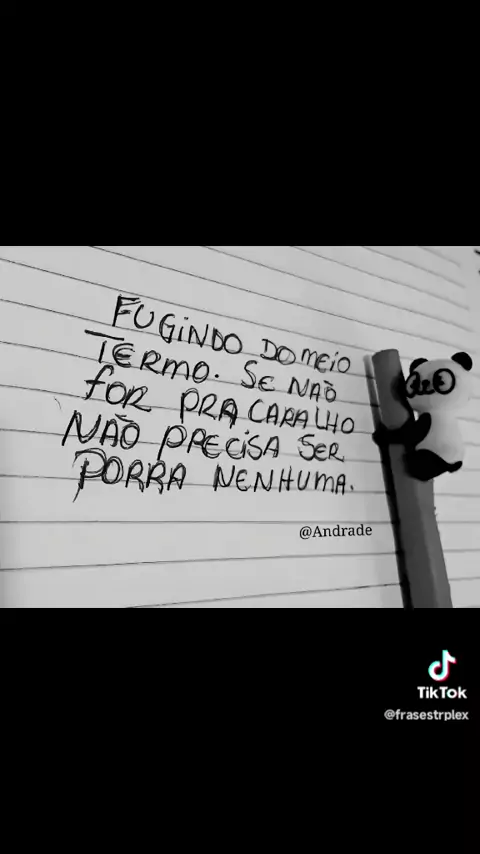 FUGINDO DO MEIO
TERMO. SE NÃO
FOR PRA CARALHO
NÃO PRECISA SER
PORRA NENHUMA.
@Andrade
TikTok
@frasestrplex